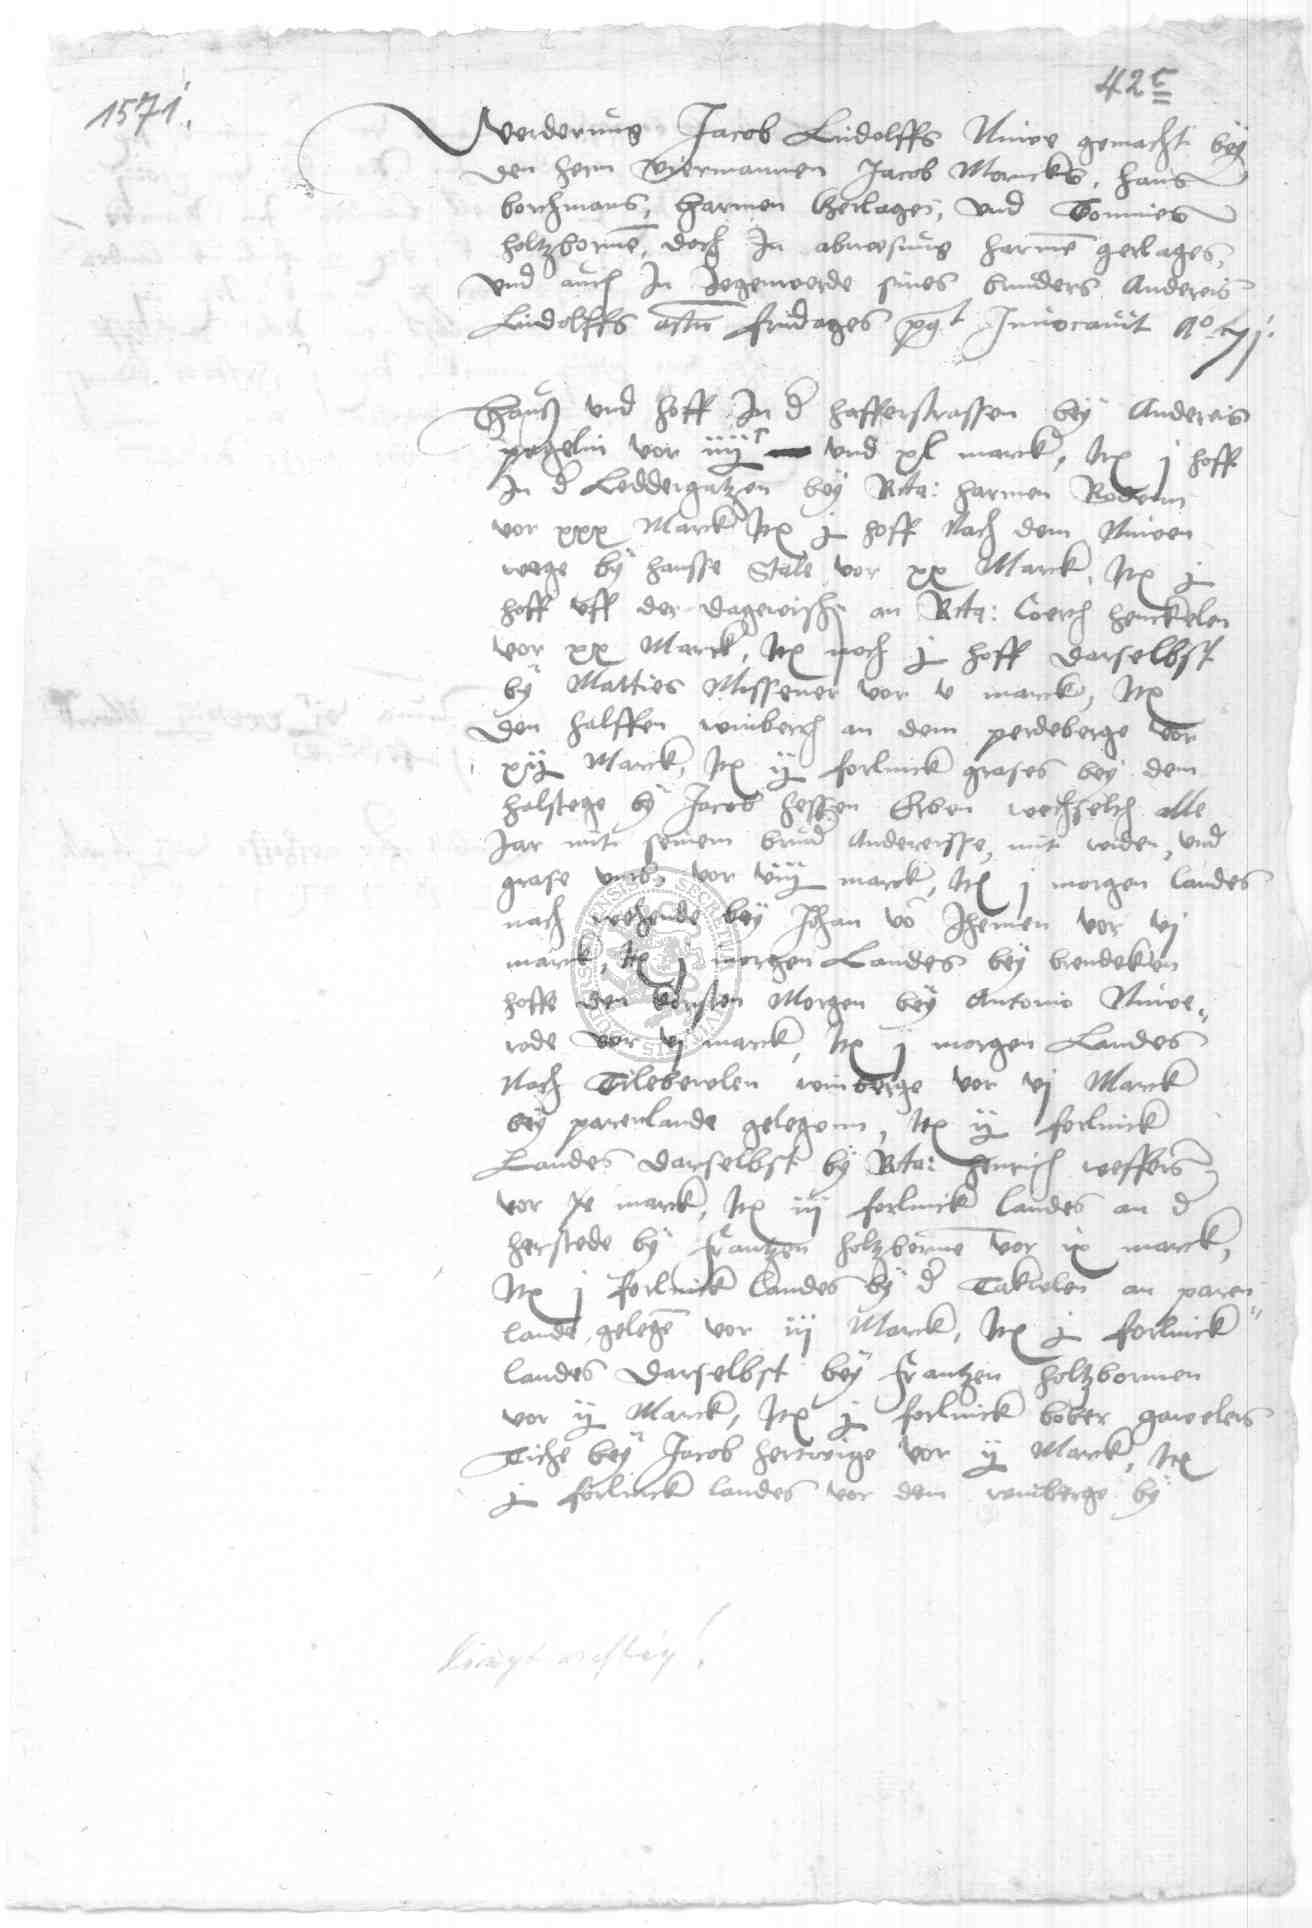 1571.
42c
Werderung Jacob Ludolffs Niwe gemacht bey
den hern Viermannen Jacob Marcks, Hans
borchmans, Harmen Gerlages, vnd Tonnies
holtzborne, doch in abwesung harme gerlages,
vnd auch In Jegenwerde sines bruders Andereis
Ludolffs actu fridages post Inuocauit Ao
Hauß vnd hoff In der hafferstrassen bey Andereis
vor iiijc vnd xl marck, Itē j hoff
In d Leddergatzen bey Rta: harmen Rodenn
vor xxx Marck Itē j hoff Nach dem Niwen
wege by hansse Stale vor xx Marck, Itē j
hoff vff der dagewische an Rta: Coerth henckelen
vor xx Marck, Itē noch j hoff darselbst
by Matties Missener vor v marck, Itē
den halffen winberch an dem perdeberge vor
xij Marck, Itē ij forlinck grases bey dem
halstege by Jacob hessen Erben wechselth alle
Jar mit seinem brud Andereisse, mit weiden, vnd
grase vor viij marck, Itē j morgen landes
nach wehende bey Johan vō Jhemen vor vj
marck, Itē j morgen Landes bey brendeken
hoffe den Morgen bey Antonio Niwe-
rode vor vj marck, Itē j morgen Landes
Nach Tileberelen winberge vor vj Marck
bey parenlande gelegenn, Itē ij forlinck
Landes darselbst by Rta: Henrich weffers
vor marck, Itē iij forlinck landes an d
herstede by Frantzen holtzborne vor ix marck,
Itē j forlinck landes by d an paren-
lande gelegē vor iij Marck, Itē j forlinck
landes darselbst bey Frantzen holtzbornen
vor ij Marck, Itē j forlinck bober gawelers
Tiche bey Jacob hertwige vor ij Marck, Itē
j forlinck landes vor dem winberge by